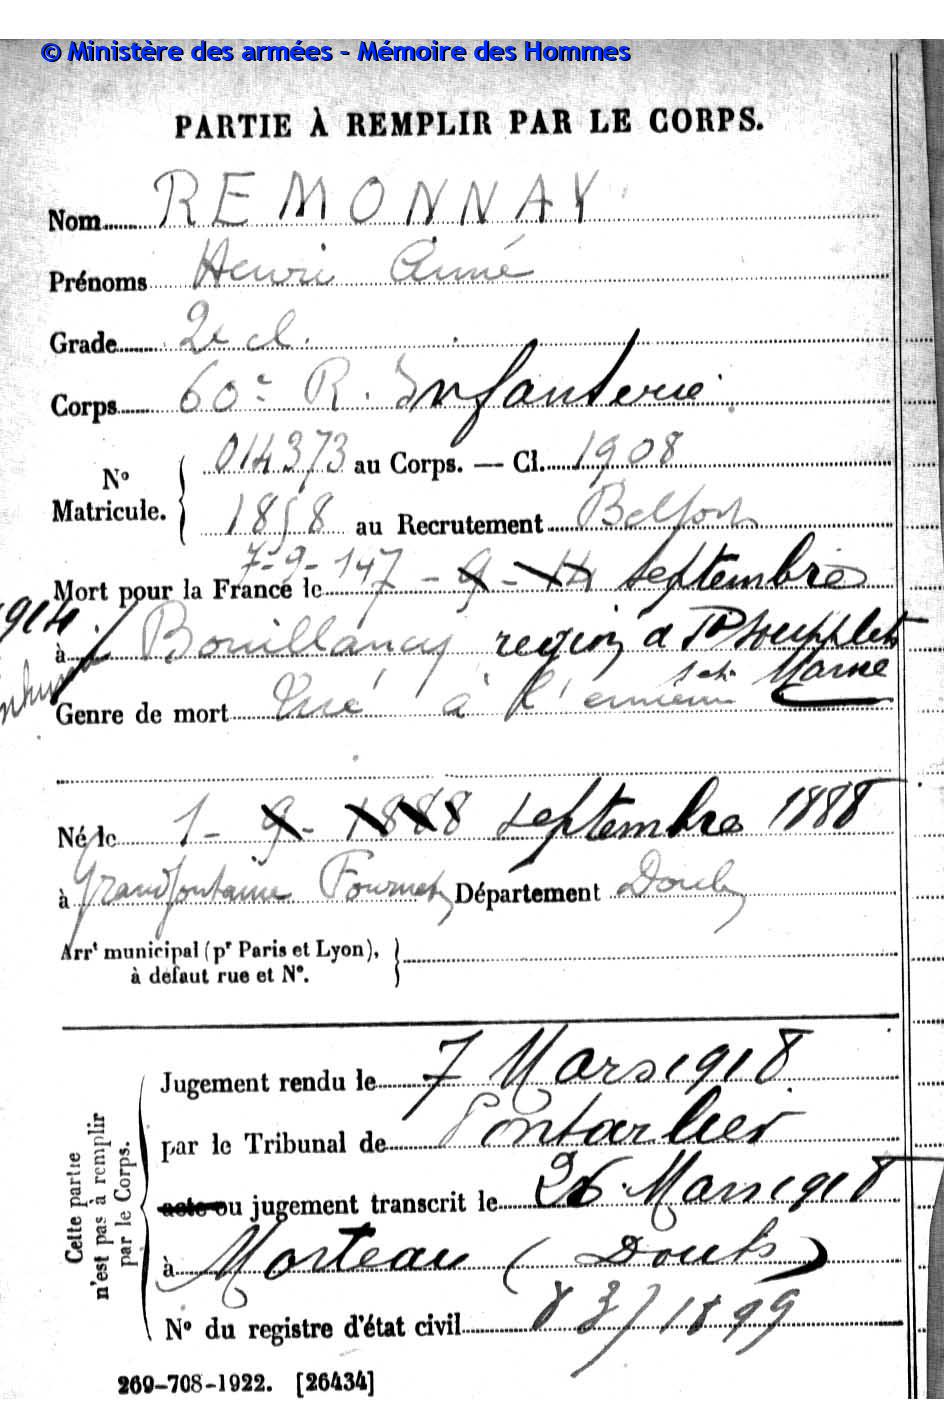 © Ministère des armées - Mémoire des Hommes
PARTIE À REMPLIR PAR LE CORPS.
Nom REMONNAY
Prénoms Henri Aimé
Grade 2e cl.
Corps 60e R. Infanterie
No Matricule. 014373 au Corps. — Cl. 1908
1858 au Recrutement Belfort
7-9-14
Mort pour la France le 7 - 9 - 14 septembre
1914
à Bouillancy région d
Marne
Genre de mort Tué à l'ennemi
Né le 1 - 9 - 1888 septembre 1888
à Grandfontaine Fournets Département Doubs
Arrt municipal (pr Paris et Lyon),
à défaut rue et No.
Cette partie
n'est pas à remplir
par le Corps.
Jugement rendu le 7 Mars 1918
par le Tribunal de Pontarlier
acte ou jugement transcrit le 26 Mars 1918
à Morteau (Doubs)
No du registre d'état civil 83/1899
269-708-1922. [26434]